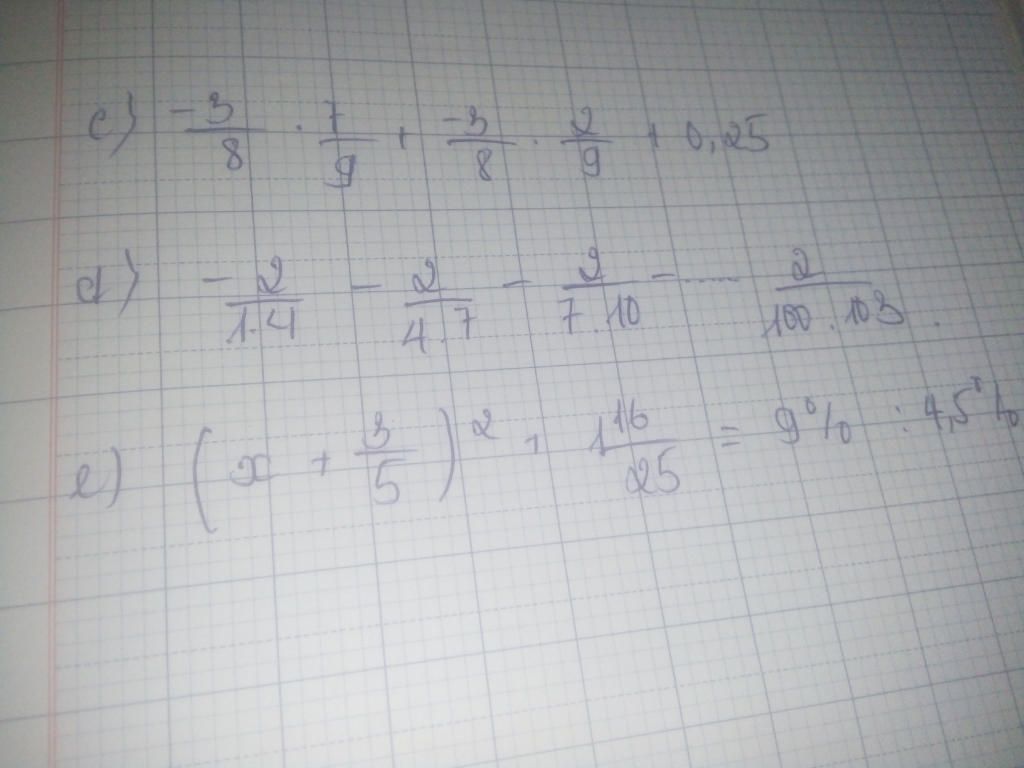 c) -3/8 · 7/9 + -3/8 · 2/9 + 0,25
d) - 2/1.4 - 2/4.7 - 2/7.10 - ... 2/100.103 .
e) (x + 3/5)² + 1 16/25 = 9% : 4,5%